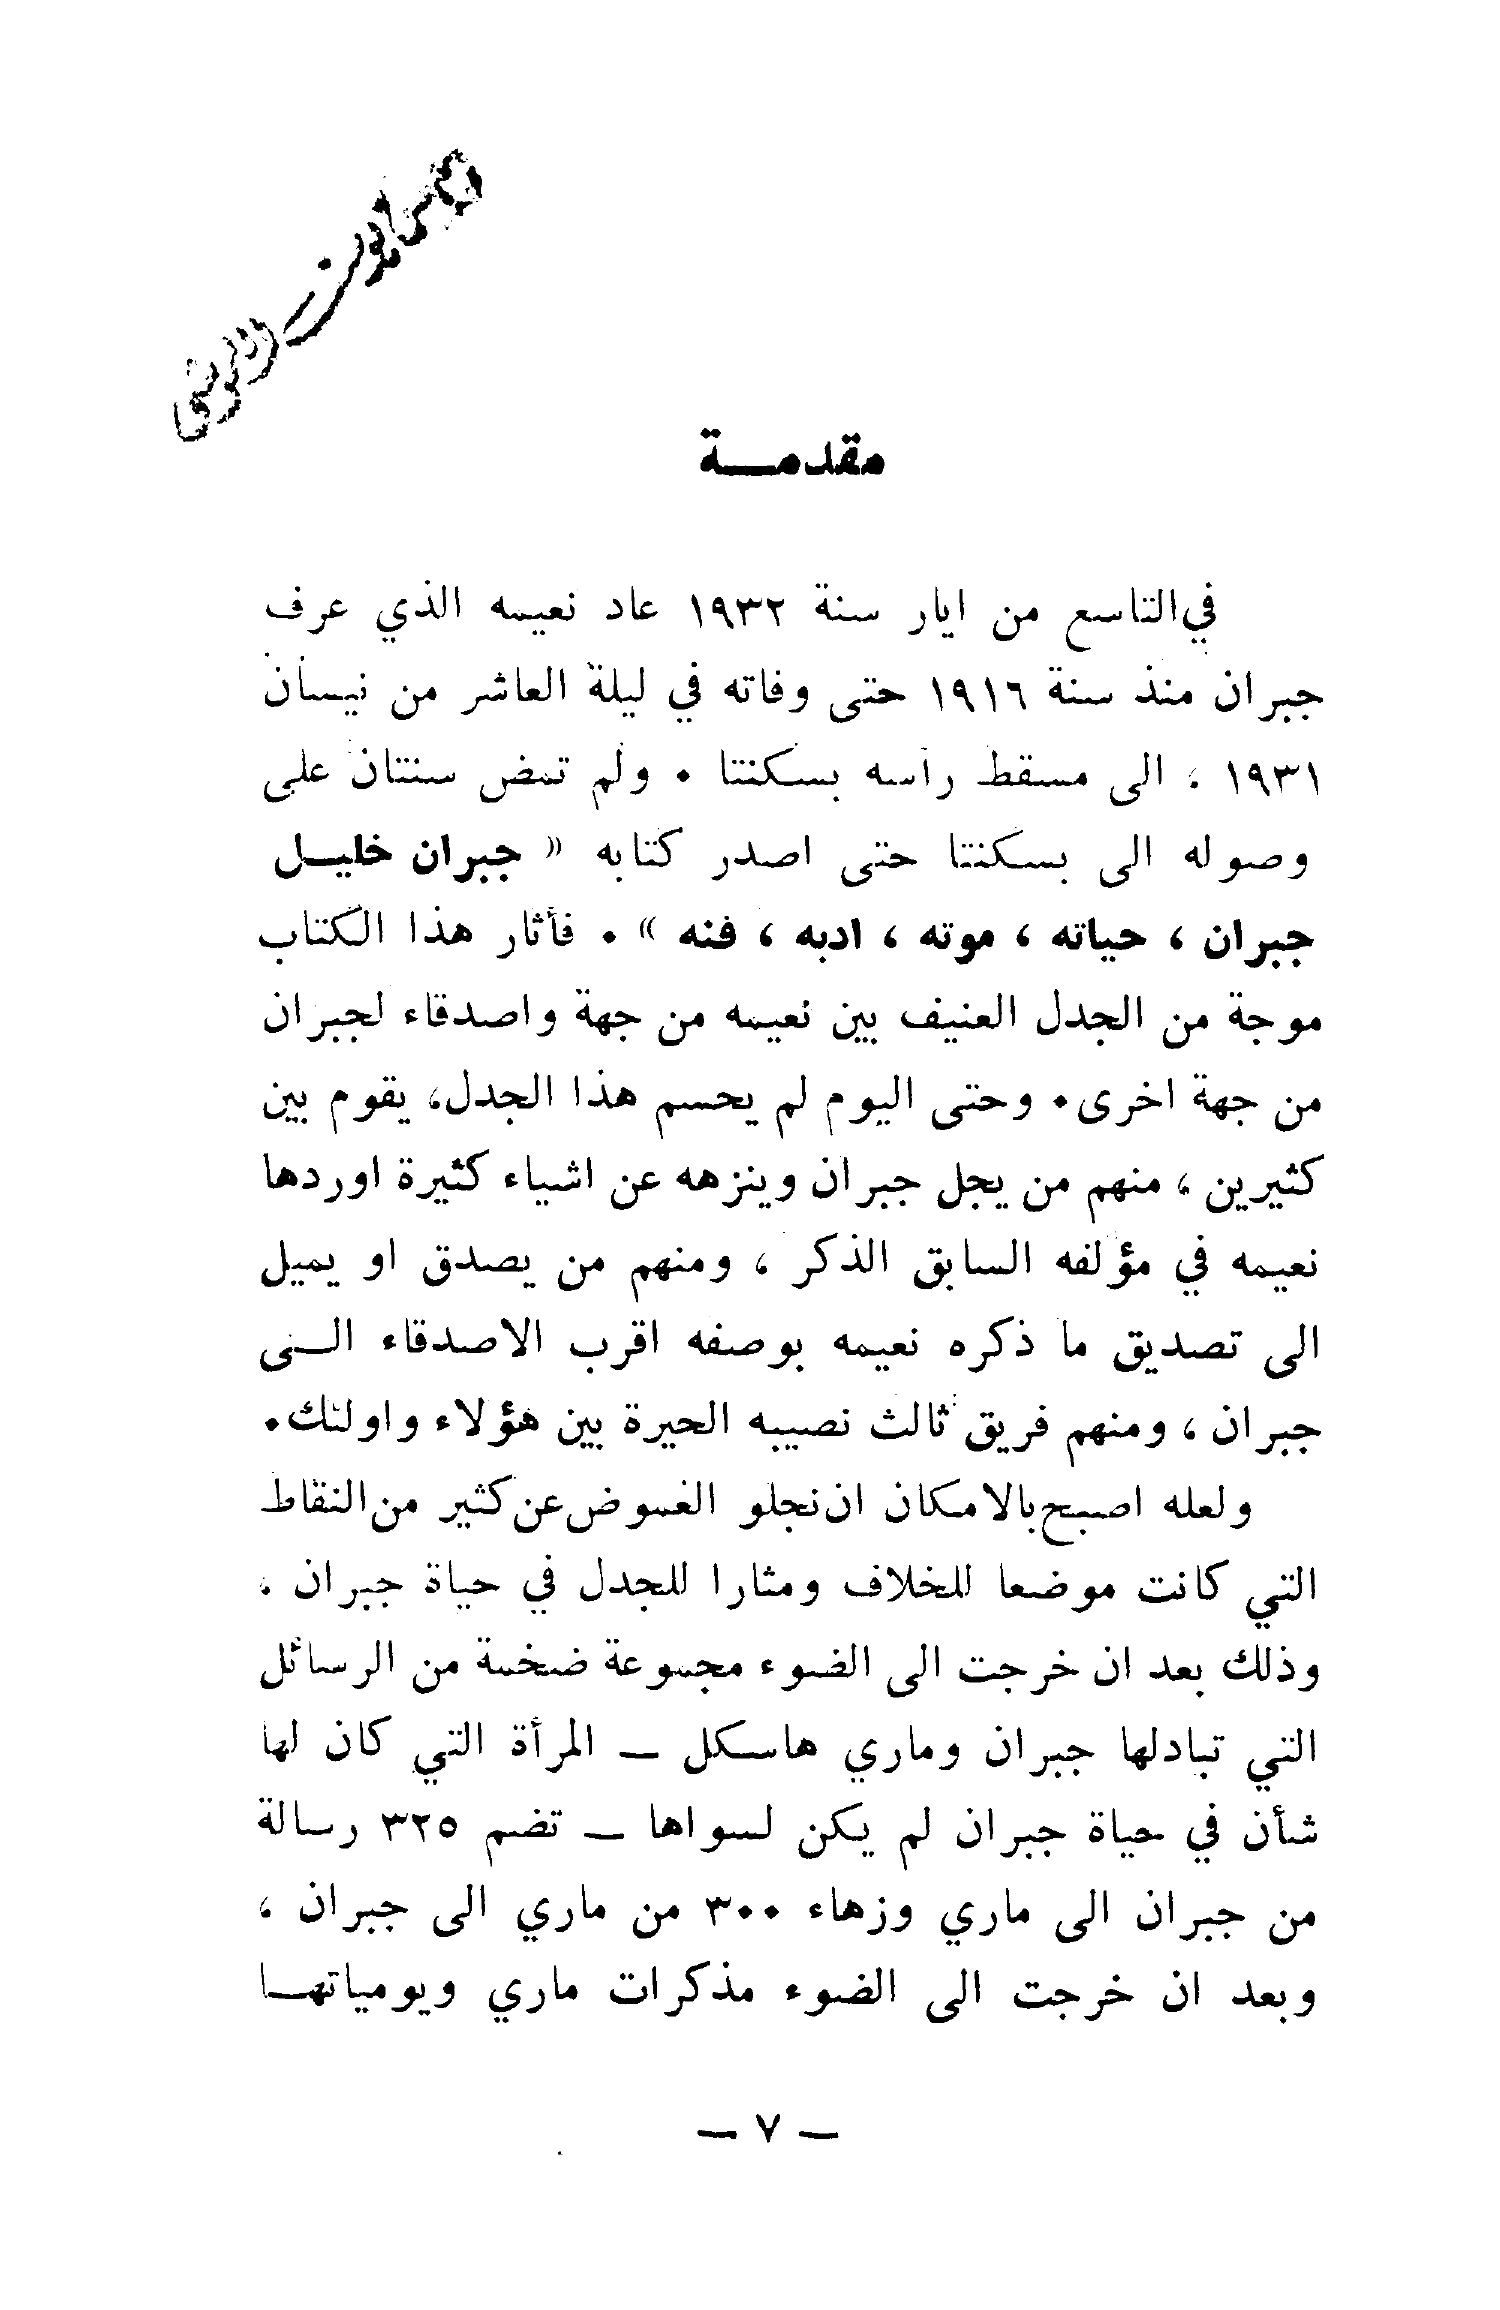 مقدمــة
في التاسع من ايار سنة ١٩٣٢ عاد نعيمه الذي عرف
جبران منذ سنة ١٩١٦ حتى وفاته في ليلة العاشر من نيسان
١٩٣١ ، الى مسقط رأسه بسكنتا . ولم تمض سنتان على
وصوله الى بسكنتا حتى اصدر كتابه « جبران خليــل
جبران ، حياته ، موته ، ادبه ، فنه » . فأثار هذا الكتاب
موجة من الجدل العنيف بين نعيمه من جهة واصدقاء لجبران
من جهة اخرى. وحتى اليوم لم يحسم هذا الجدل، يقوم بين
كثيرين ، منهم من يجل جبران وينزهه عن اشياء كثيرة اوردها
نعيمه في مؤلفه السابق الذكر ، ومنهم من يصدق او يميل
الى تصديق ما ذكره نعيمه بوصفه اقرب الاصدقاء الــى
جبران ، ومنهم فريق ثالث نصيبه الحيرة بين هؤلاء واولئك.
ولعله اصبح بالامكان ان نجلو الغموض عن كثير من النقاط
التي كانت موضعا للخلاف ومثارا للجدل في حياة جبران ،
وذلك بعد ان خرجت الى الضوء مجموعة ضخمة من الرسائل
التي تبادلها جبران وماري هاسكل – المرأة التي كان لها
شأن في حياة جبران لم يكن لسواها – تضم ٣٢٥ رسالة
من جبران الى ماري وزهاء ٣٠٠ من ماري الى جبران ،
وبعد ان خرجت الى الضوء مذكرات ماري ويومياتهــا
– ٧ –